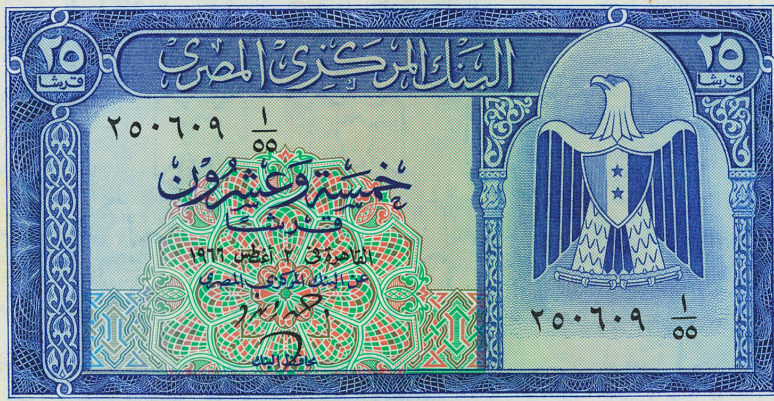 ٢٥ البنك المركزى المصرى ٢٥
قرشا قرشا
٢٥٠٦٠٩ ١/٥٥
خمسة وعشرون
قرشا
القاهرة فى ٢ أغسطس ١٩٦٦
عن البنك المركزى المصرى
٢٥٠٦٠٩ ١/٥٥